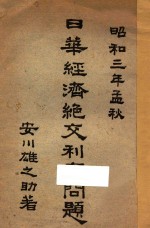 昭和三年孟秋
日華經濟絶交利問題
安川雄之助著